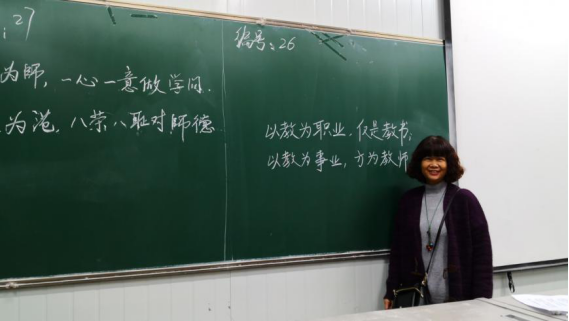 :27
为师，一心一意做学问.
为范，八荣八耻对师德
编号：26
以教为职业，仅是教书；
以教为事业，方为教师